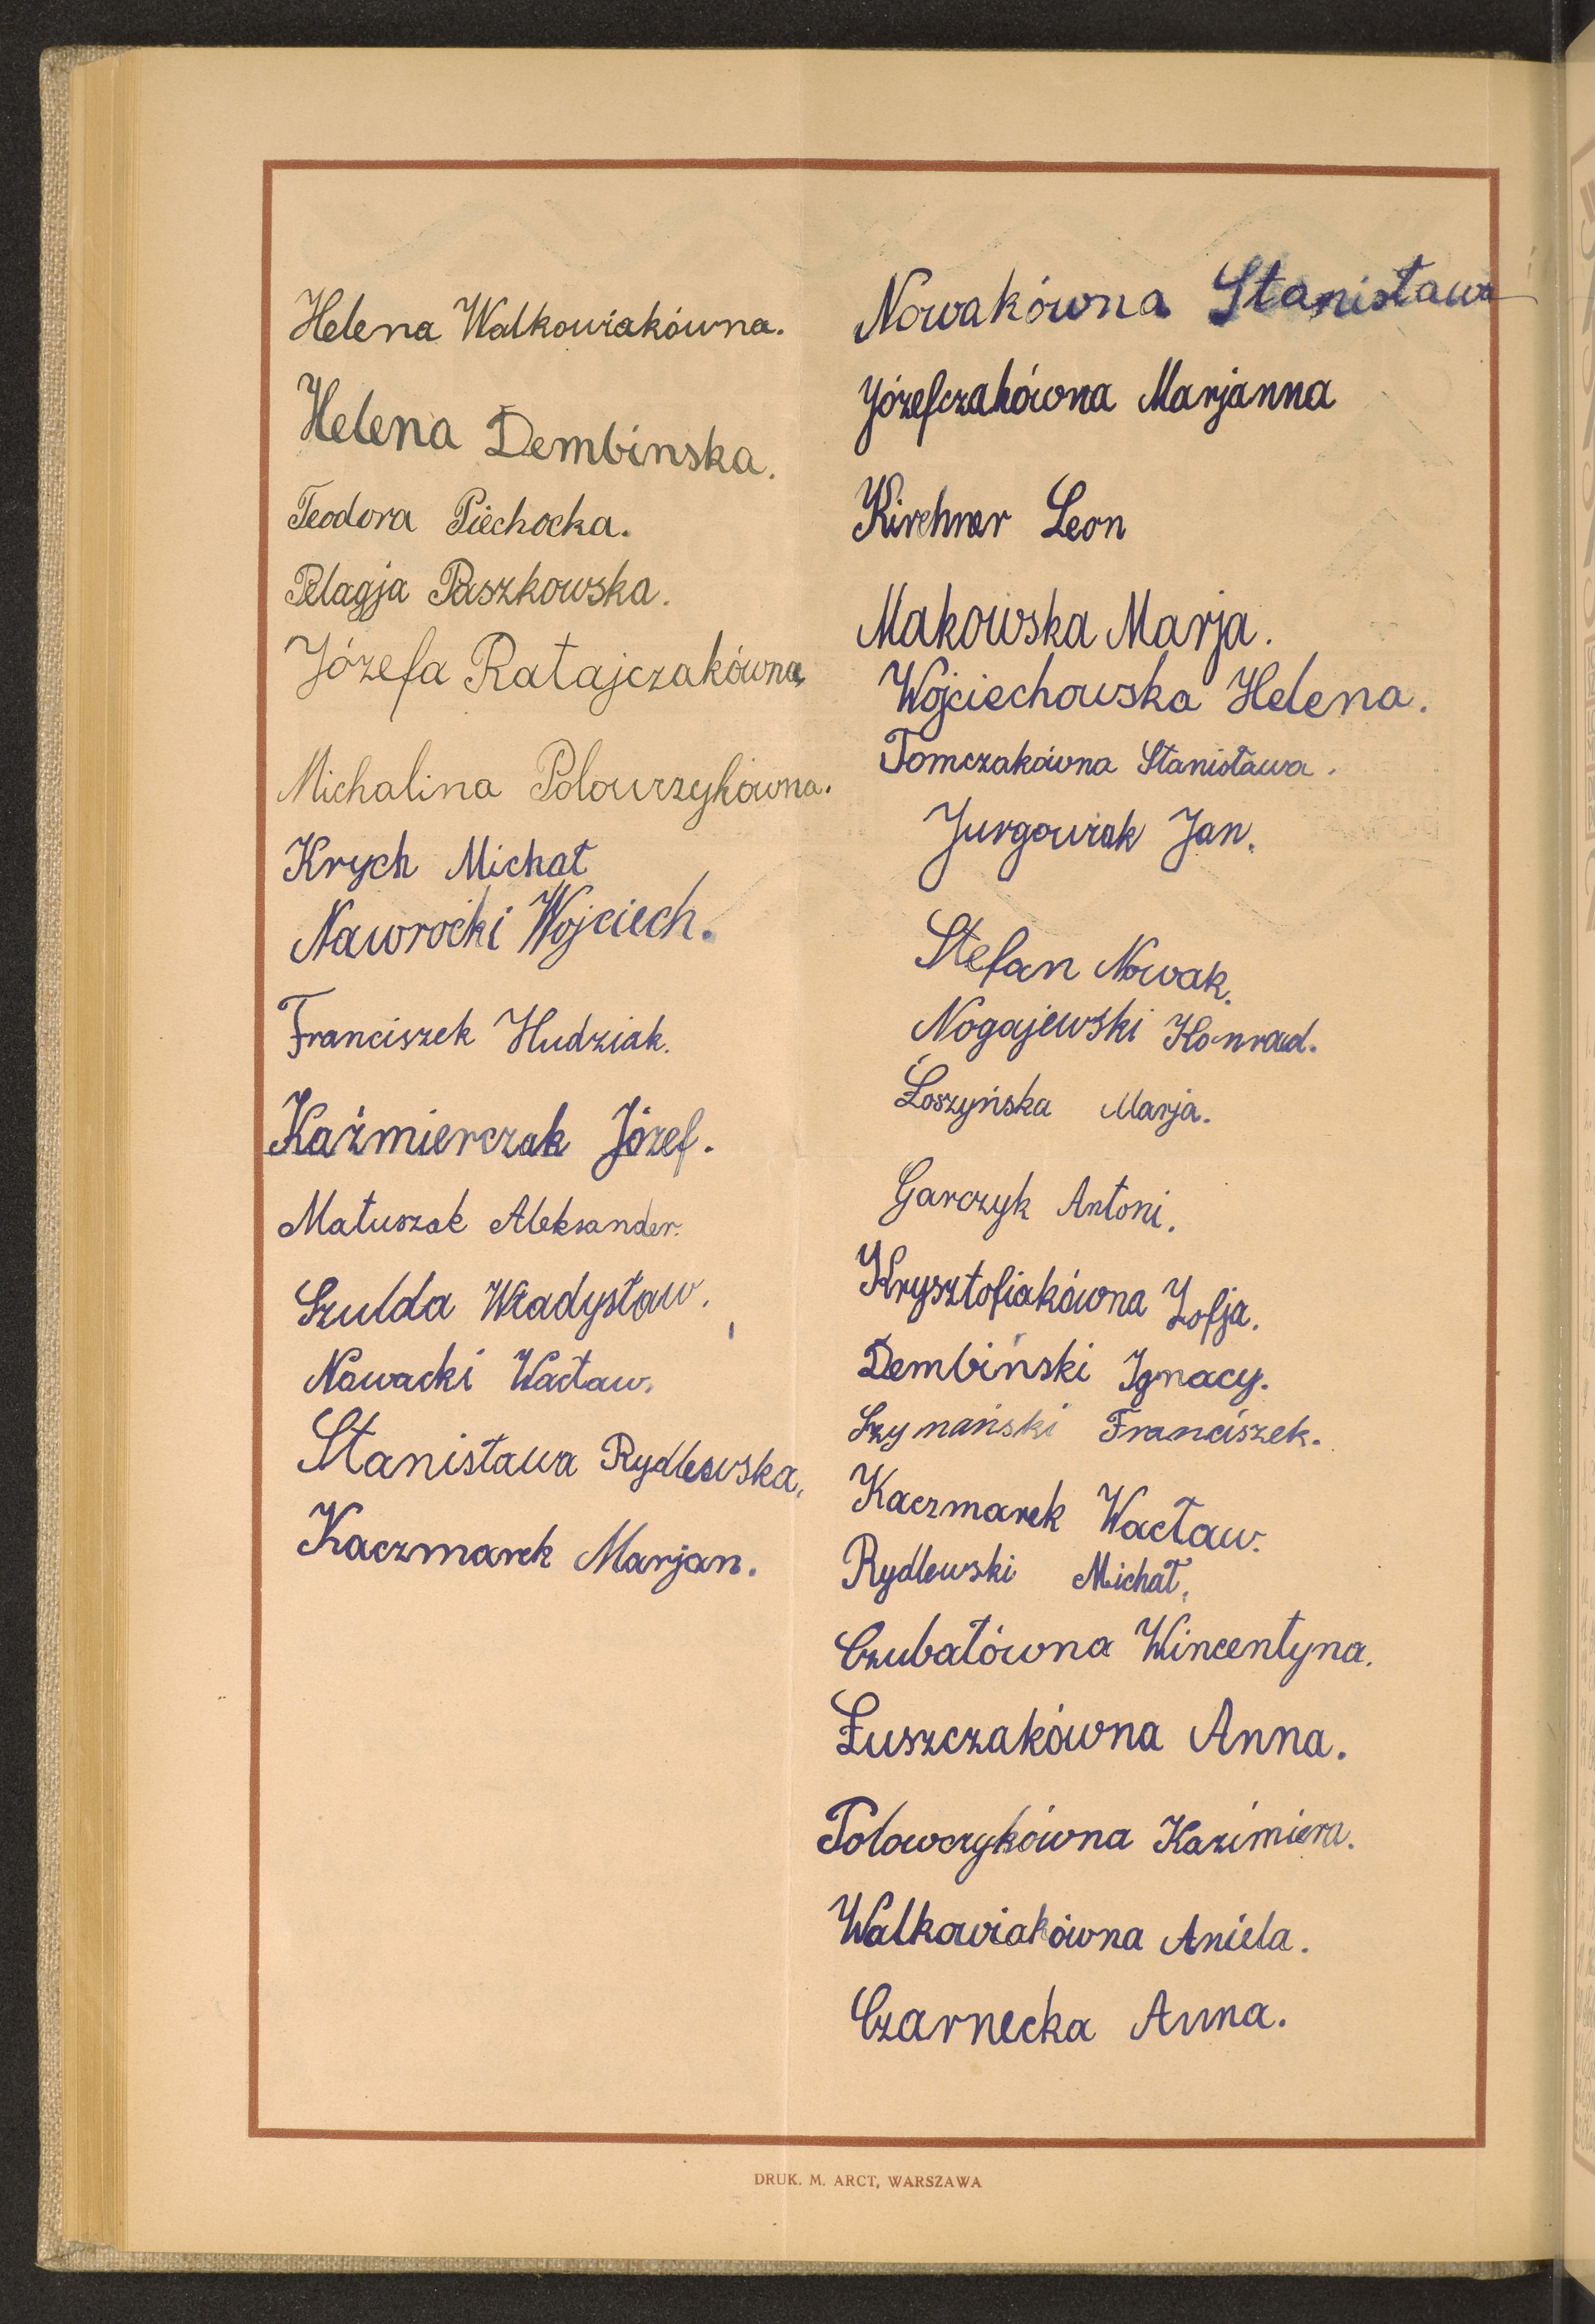 Helena Walkowiakówna.
Helena Dembinska.
Teodora Piechocka.
Pelagja Paszkowska.
Józefa Ratajczakówna
Michalina Polowczykówna.
Krych Michał
Nawrocki Wojciech.
Franciszek Hudziak.
Kaźmierczak Józef.
Matuszak Aleksander.
Szulda Władysław.
Nowacki Wacław.
Stanisława Rydlewska.
Kaczmarek Marjan.
Nowakówna Stanisława
Józefczakówna Marjanna
Kirchner Leon
Makowska Marja.
Wojciechowska Helena.
Tomczakówna Stanisława.
Jurgowiak Jan.
Stefan Nowak.
Nogajewski Konrad.
Łoszyńska Marja.
Garczyk Antoni.
Krysztofiakówna Zofja.
Dembiński Ignacy.
Szymański Franciszek.
Kaczmarek Wacław.
Rydlewski Michał.
Czubatówna Wincentyna.
Łuszczakówna Anna.
Polowczykówna Kazimiera.
Walkowiakówna Aniela.
Czarnecka Anna.
DRUK. M. ARCT, WARSZAWA